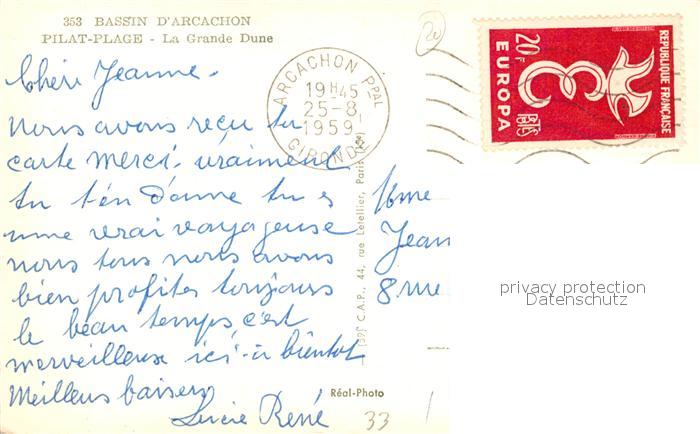 353 BASSIN D'ARCACHON
PILAT-PLAGE - La Grande Dune
Chère Jeanne.
nous avons reçu ta
carte merci. vraiment
tu t'en donne tu es
une vrai voyageuse
nous tous nous avons
bien profités toujours
le beau temps, c'est
merveilleuse ici. à bientot
Meilleurs baisers
Lucie René
Réal-Photo
33
ARCACHON PPAL
19H45
25-8
1959
GIRONDE
C.A.P., 44, rue Letellier, Paris
REPUBLIQUE FRANÇAISE
20F
EUROPA
POSTES
Mme
Jean
8 rue
privacy protection
Datenschutz